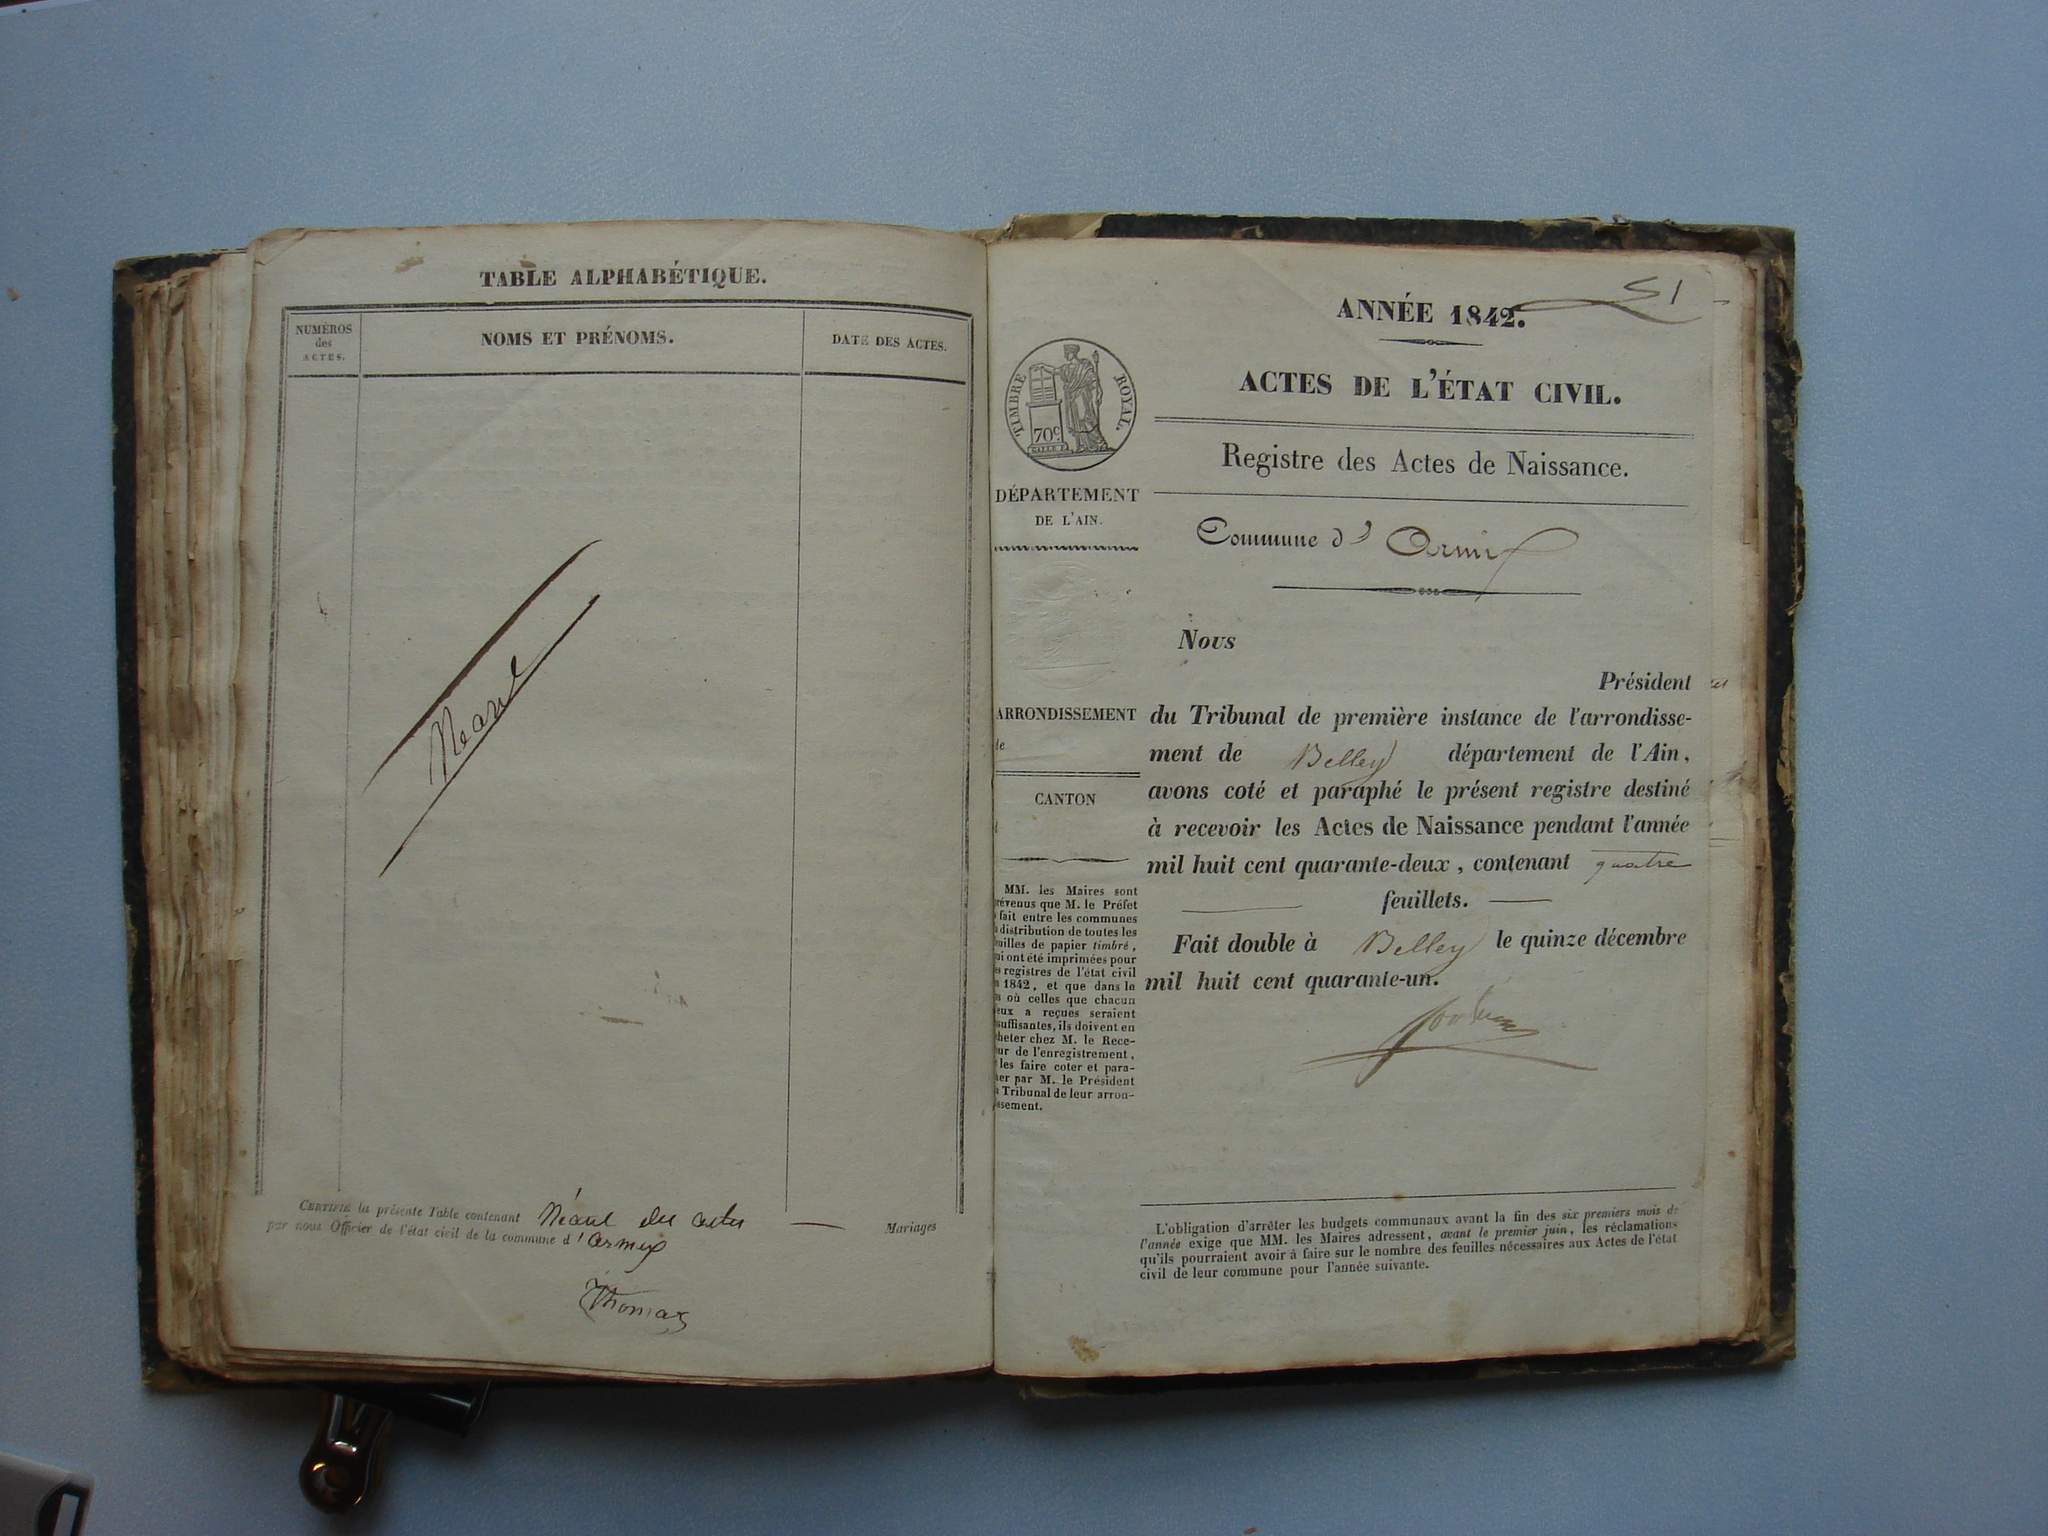 TABLE ALPHABÉTIQUE.
NUMÉROS
des
ACTES.
NOMS ET PRÉNOMS.
DATE DES ACTES.
Néant
CERTIFIÉ la présente Table contenant Néant des actes — Mariages
par nous Officier de l'état civil de la commune d'armix
Thomas
51
ANNÉE 1842.
ACTES DE L'ÉTAT CIVIL.
Registre des Actes de Naissance.
Commune d' Armix
TIMBRE ROYAL.
70c
DÉPARTEMENT
DE L'AIN.
ARRONDISSEMENT
CANTON
MM. les Maires sont
révenus que M. le Préfet
fait entre les communes
distribution de toutes les
uilles de papier timbré,
ui ont été imprimées pour
es registres de l'état civil
1842, et que dans le
où celles que chacun
eux a reçues seraient
suffisantes, ils doivent en
heter chez M. le Rece-
ur de l'enregistrement,
les faire coter et para-
her par M. le Président
Tribunal de leur arron-
ssement.
Nous
Président
du Tribunal de première instance de l'arrondisse-
ment de Belley département de l'Ain,
avons coté et paraphé le présent registre destiné
à recevoir les Actes de Naissance pendant l'année
mil huit cent quarante-deux, contenant quatre
— feuillets. —
Fait double à Belley le quinze décembre
mil huit cent quarante-un.
L'obligation d'arrêter les budgets communaux avant la fin des six premiers mois de
l'année exige que MM. les Maires adressent, avant le premier juin, les réclamations
qu'ils pourraient avoir à faire sur le nombre des feuilles nécessaires aux Actes de l'état
civil de leur commune pour l'année suivante.